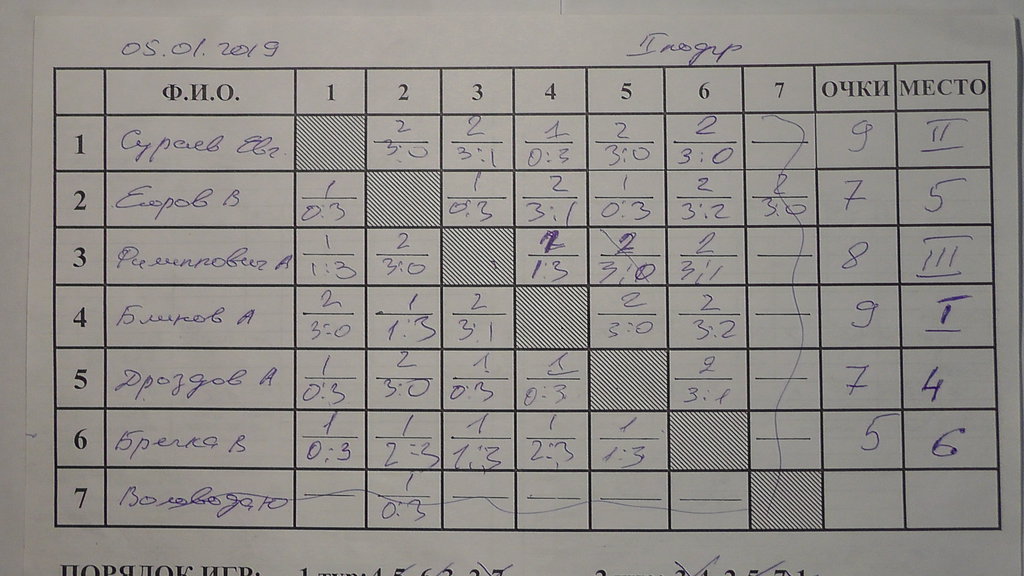 05.01.2019 I подгр
Ф.И.О. 1 2 3 4 5 6 7 ОЧКИ МЕСТО
1 Сураев Евг. 2 3:0 2 3:1 1 0:3 2 3:0 2 3:0 — 9 II
2 Егоров В 1 0:3 1 0:3 2 3:1 1 0:3 2 3:2 2 3:0 7 5
3 Филиппович А 1 1:3 2 3:0 1 1:3 2 3:0 2 3:1 — 8 III
4 Блинов А 2 3:0 1 1:3 2 3:1 2 3:0 2 3:2 — 9 I
5 Дроздов А 1 0:3 2 3:0 1 0:3 1 0:3 2 3:1 — 7 4
6 Бречка В 1 0:3 1 2:3 1 1:3 1 2:3 1 1:3 — 5 6
7 — 1 0:3 — — — —
ПОРЯДОК ИГР: 1 тур: